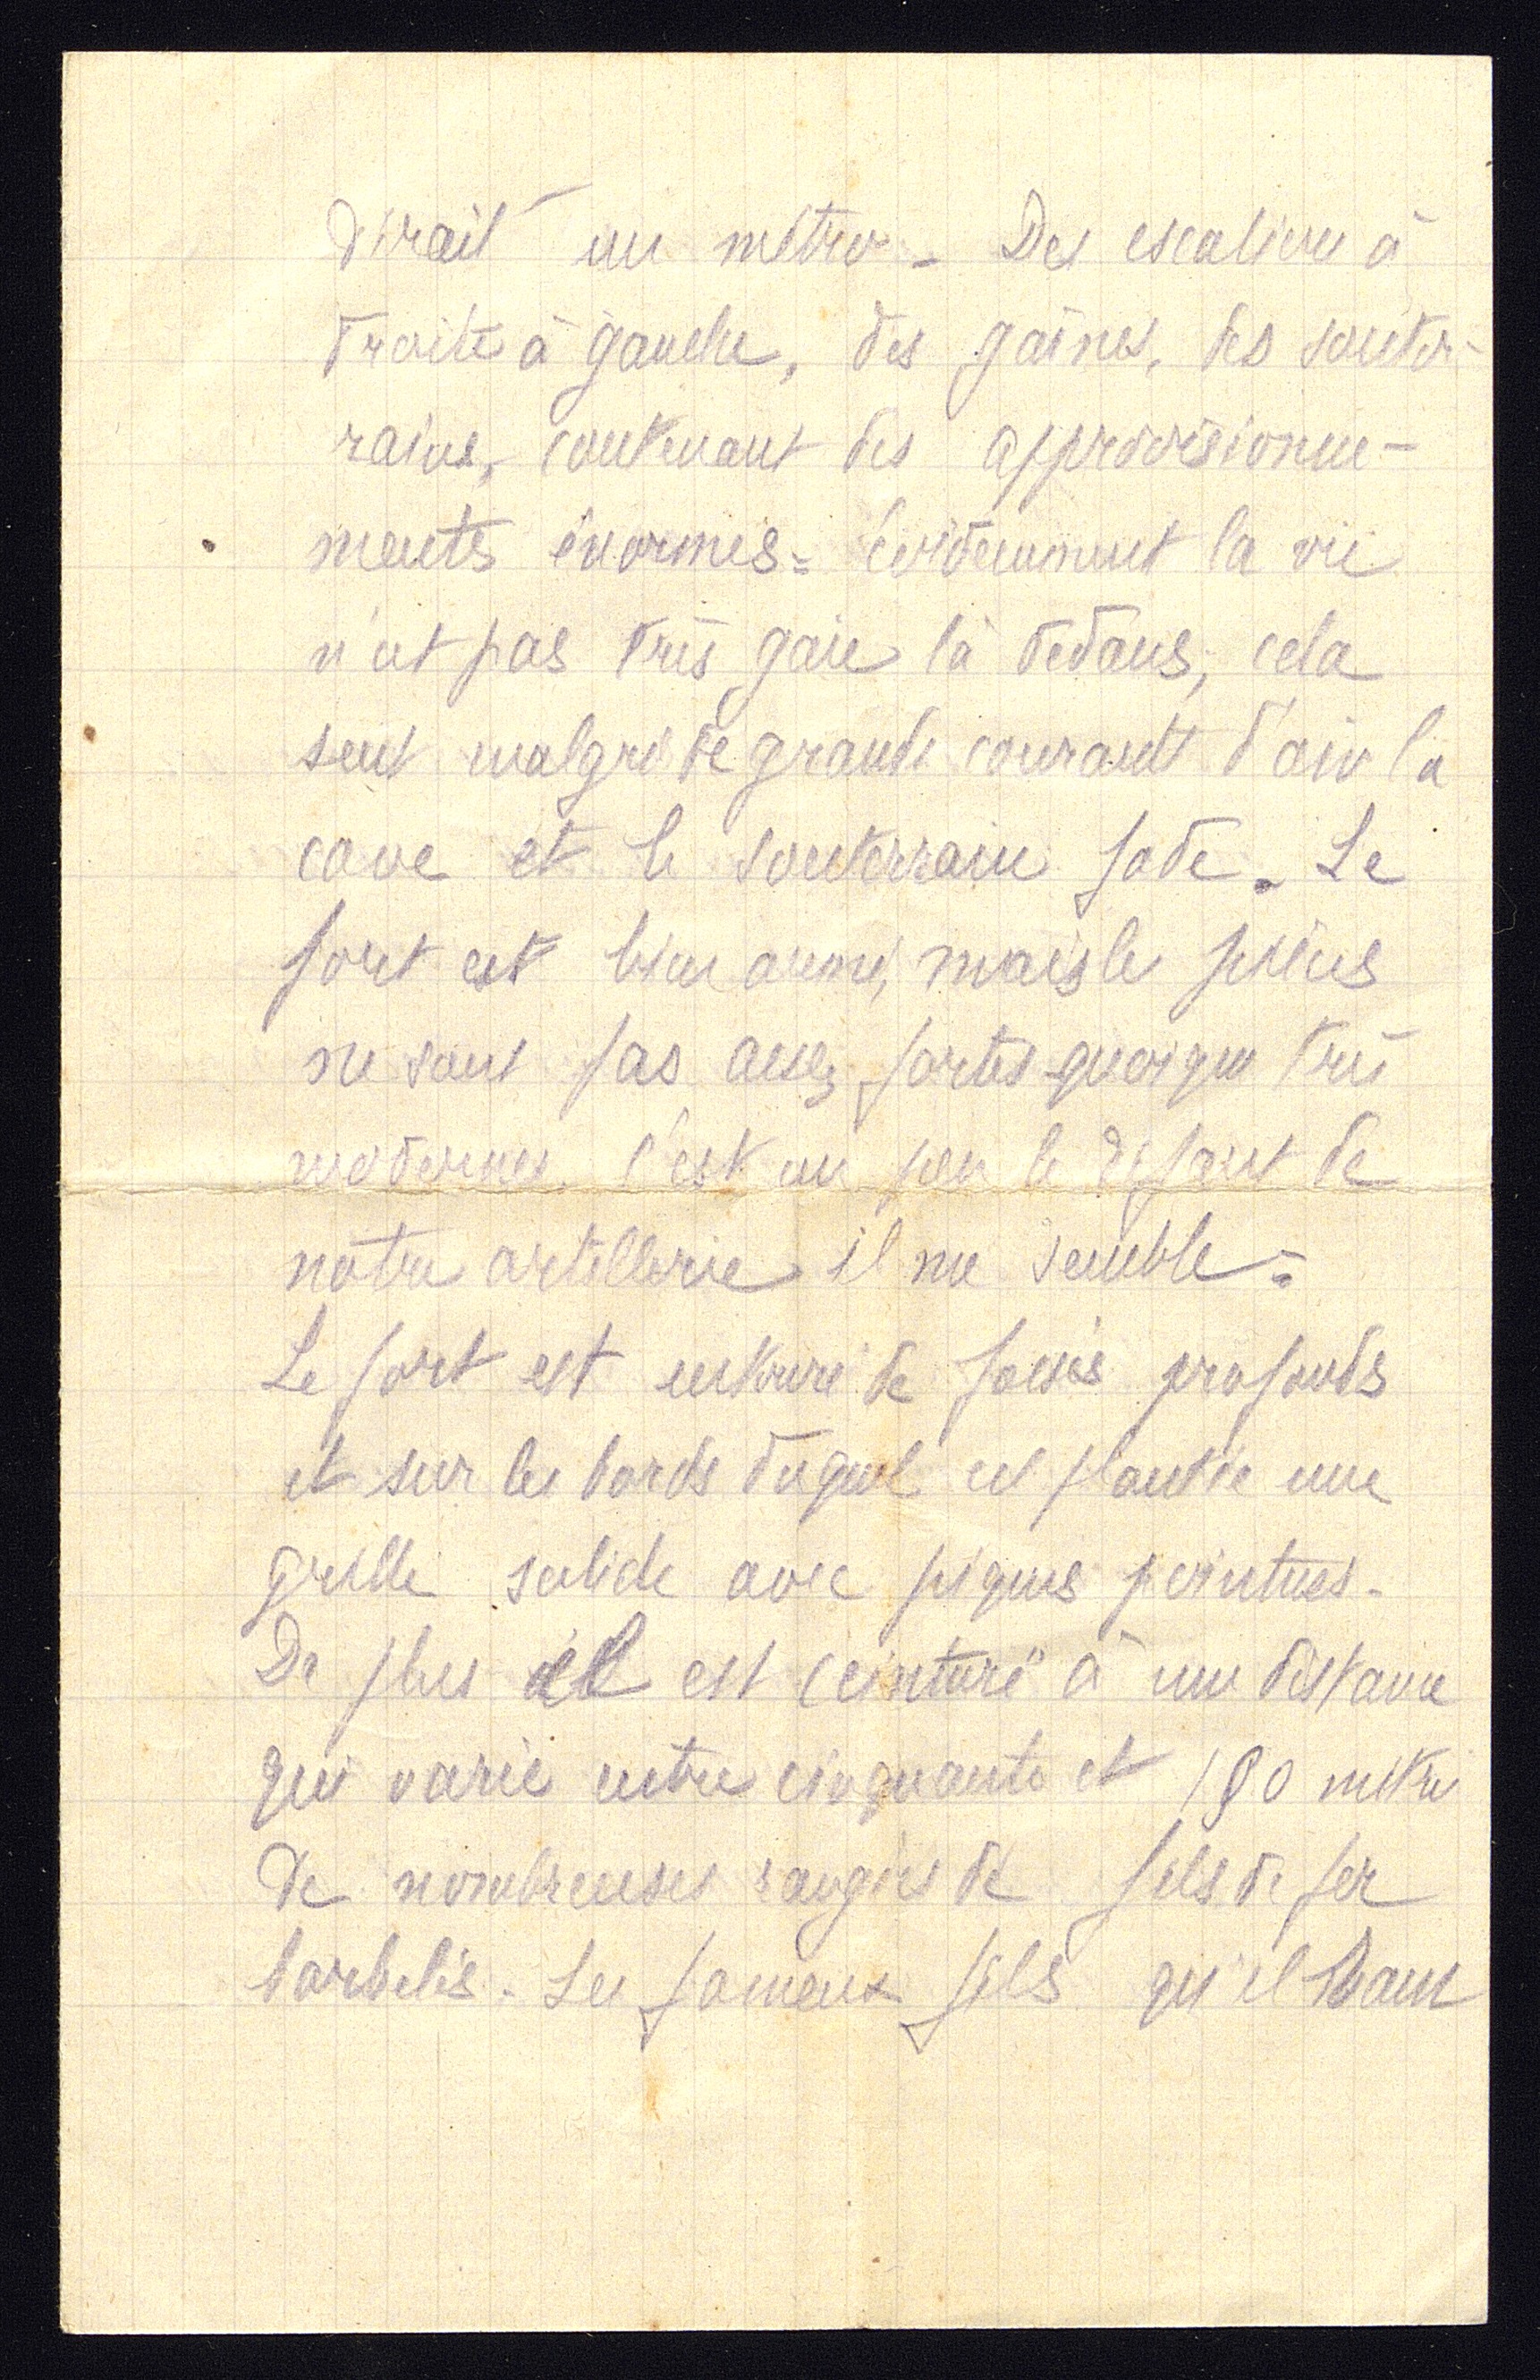 dirait un métro - Des escaliers à
droite à gauche, des gaines, des souter-
rains, contenant des approvisionne-
ments énormes = évidemment la vie
n'est pas très gaie là dedans, cela
sent malgré de grands courants d'air la
cave et le souterrain fade. Le
fort est bien armé, mais les pièces
ne sont pas assez fortes quoique très
modernes. C'est un peu le défaut de
notre artillerie il me semble =
Le fort est entouré de fossés profonds
et sur les bords duquel est plantée une
grille solide avec piques pointues.
De plus il est ceinturé à une distance
qui varie entre cinquante et 150 mètres
de nombreuses rangées de fils de fer
barbelés. Les fameux fils qu'il